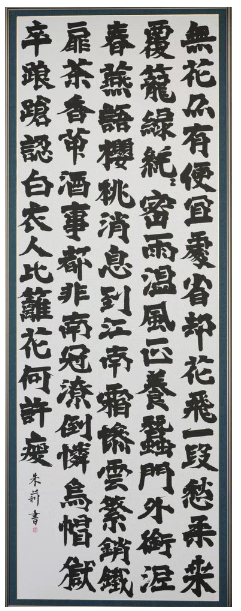 無花亦有便宜處省却花飛一段愁柔桑
覆籠綠毿毿密雨溫風正養蠶門外銜泥
春燕語櫻桃消息到江南霜慘雲繁銷鐵
扉茶香帘酒事都非南冠潦倒憐烏帽獄
卒踉蹌認白衣人比籬花何許瘦
朱莉書